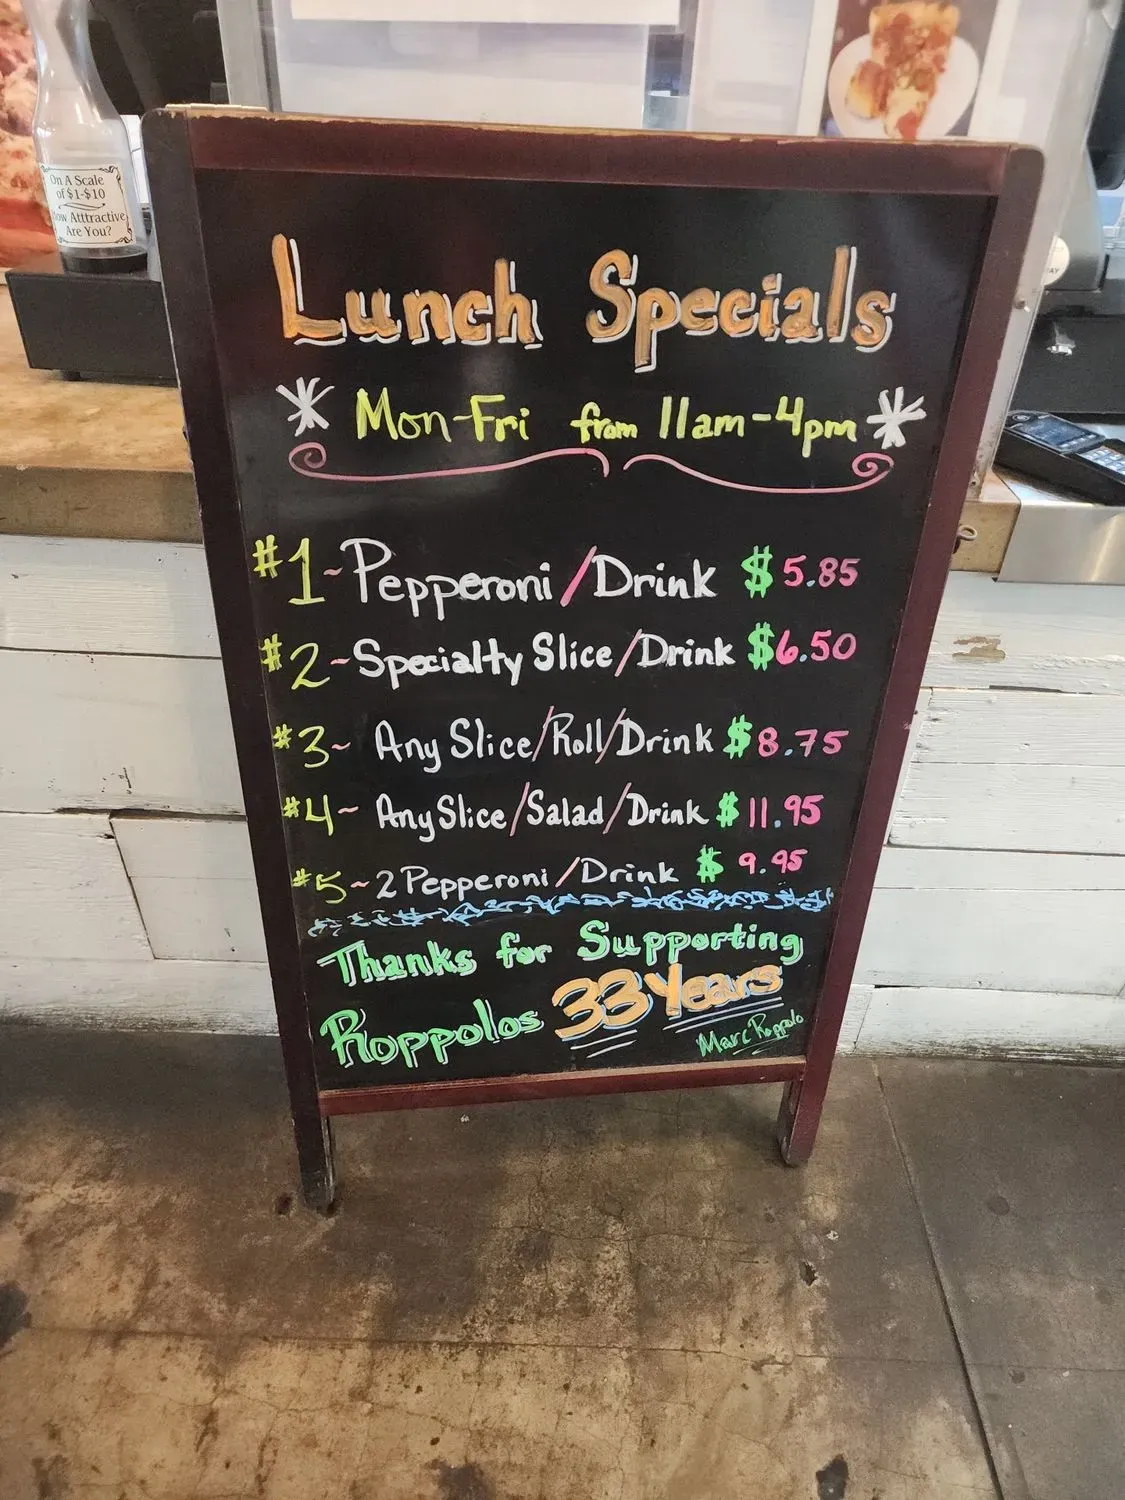 On A Scale
of $1-$10
How Atttractive
Are You?
Lunch Specials
* Mon-Fri from 11am-4pm *
#1~Pepperoni/Drink $5.85
#2~Specialty Slice/Drink $6.50
#3~ Any Slice/Roll/Drink $8.75
#4~ Any Slice/Salad/Drink $11.95
#5~2 Pepperoni/Drink $9.95
Thanks for Supporting
Roppolos 33 Years
Marc Roppolo